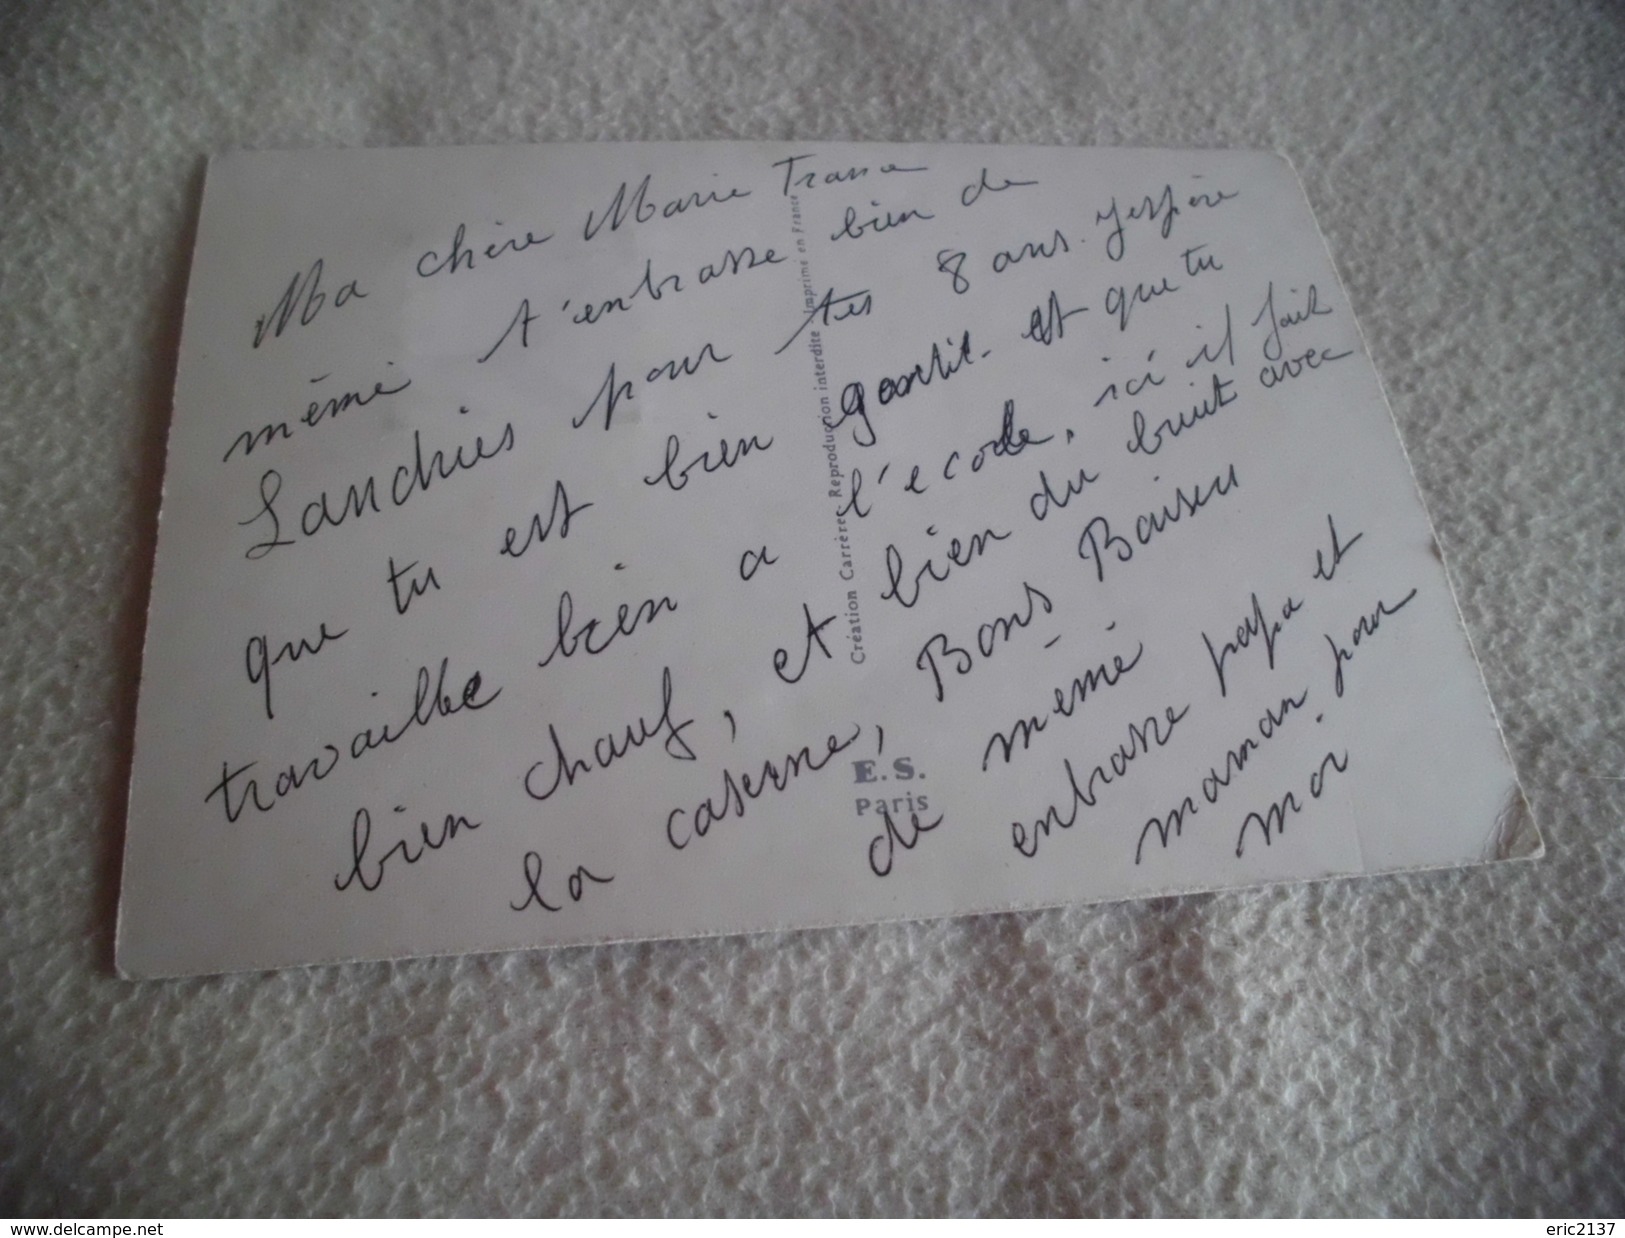 Ma chère Marie France
mémé t'enbrasse bien de
Landries pour tes 8 ans. J'espère
que tu est bien gentil. et que tu
travaille bien a l'ecole, ici il fait
bien chauf, et bien du bruit avec
la caserne, Bons Baiseu
de mémé
enbrasse papa et
maman pour
moi
Création Carrère. Reproduction interdite - Imprimé en France
E.S.
Paris
www.delcampe.net
eric2137